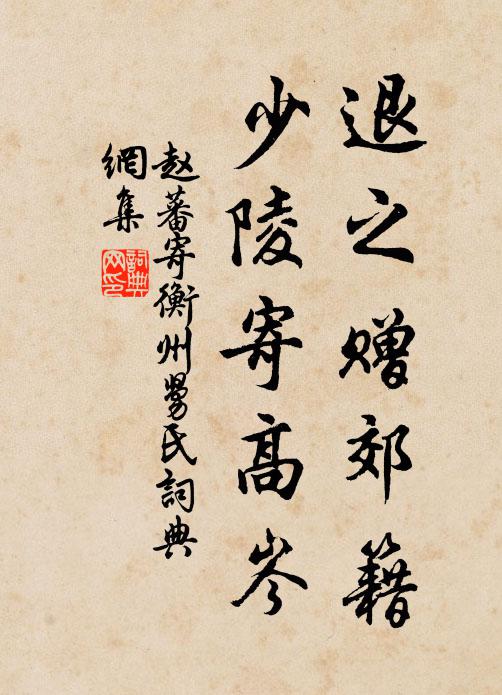 退之赠郊籍
少陵寄高岑
赵蕃寄衡州劳氏詞典
網集
詞典网印